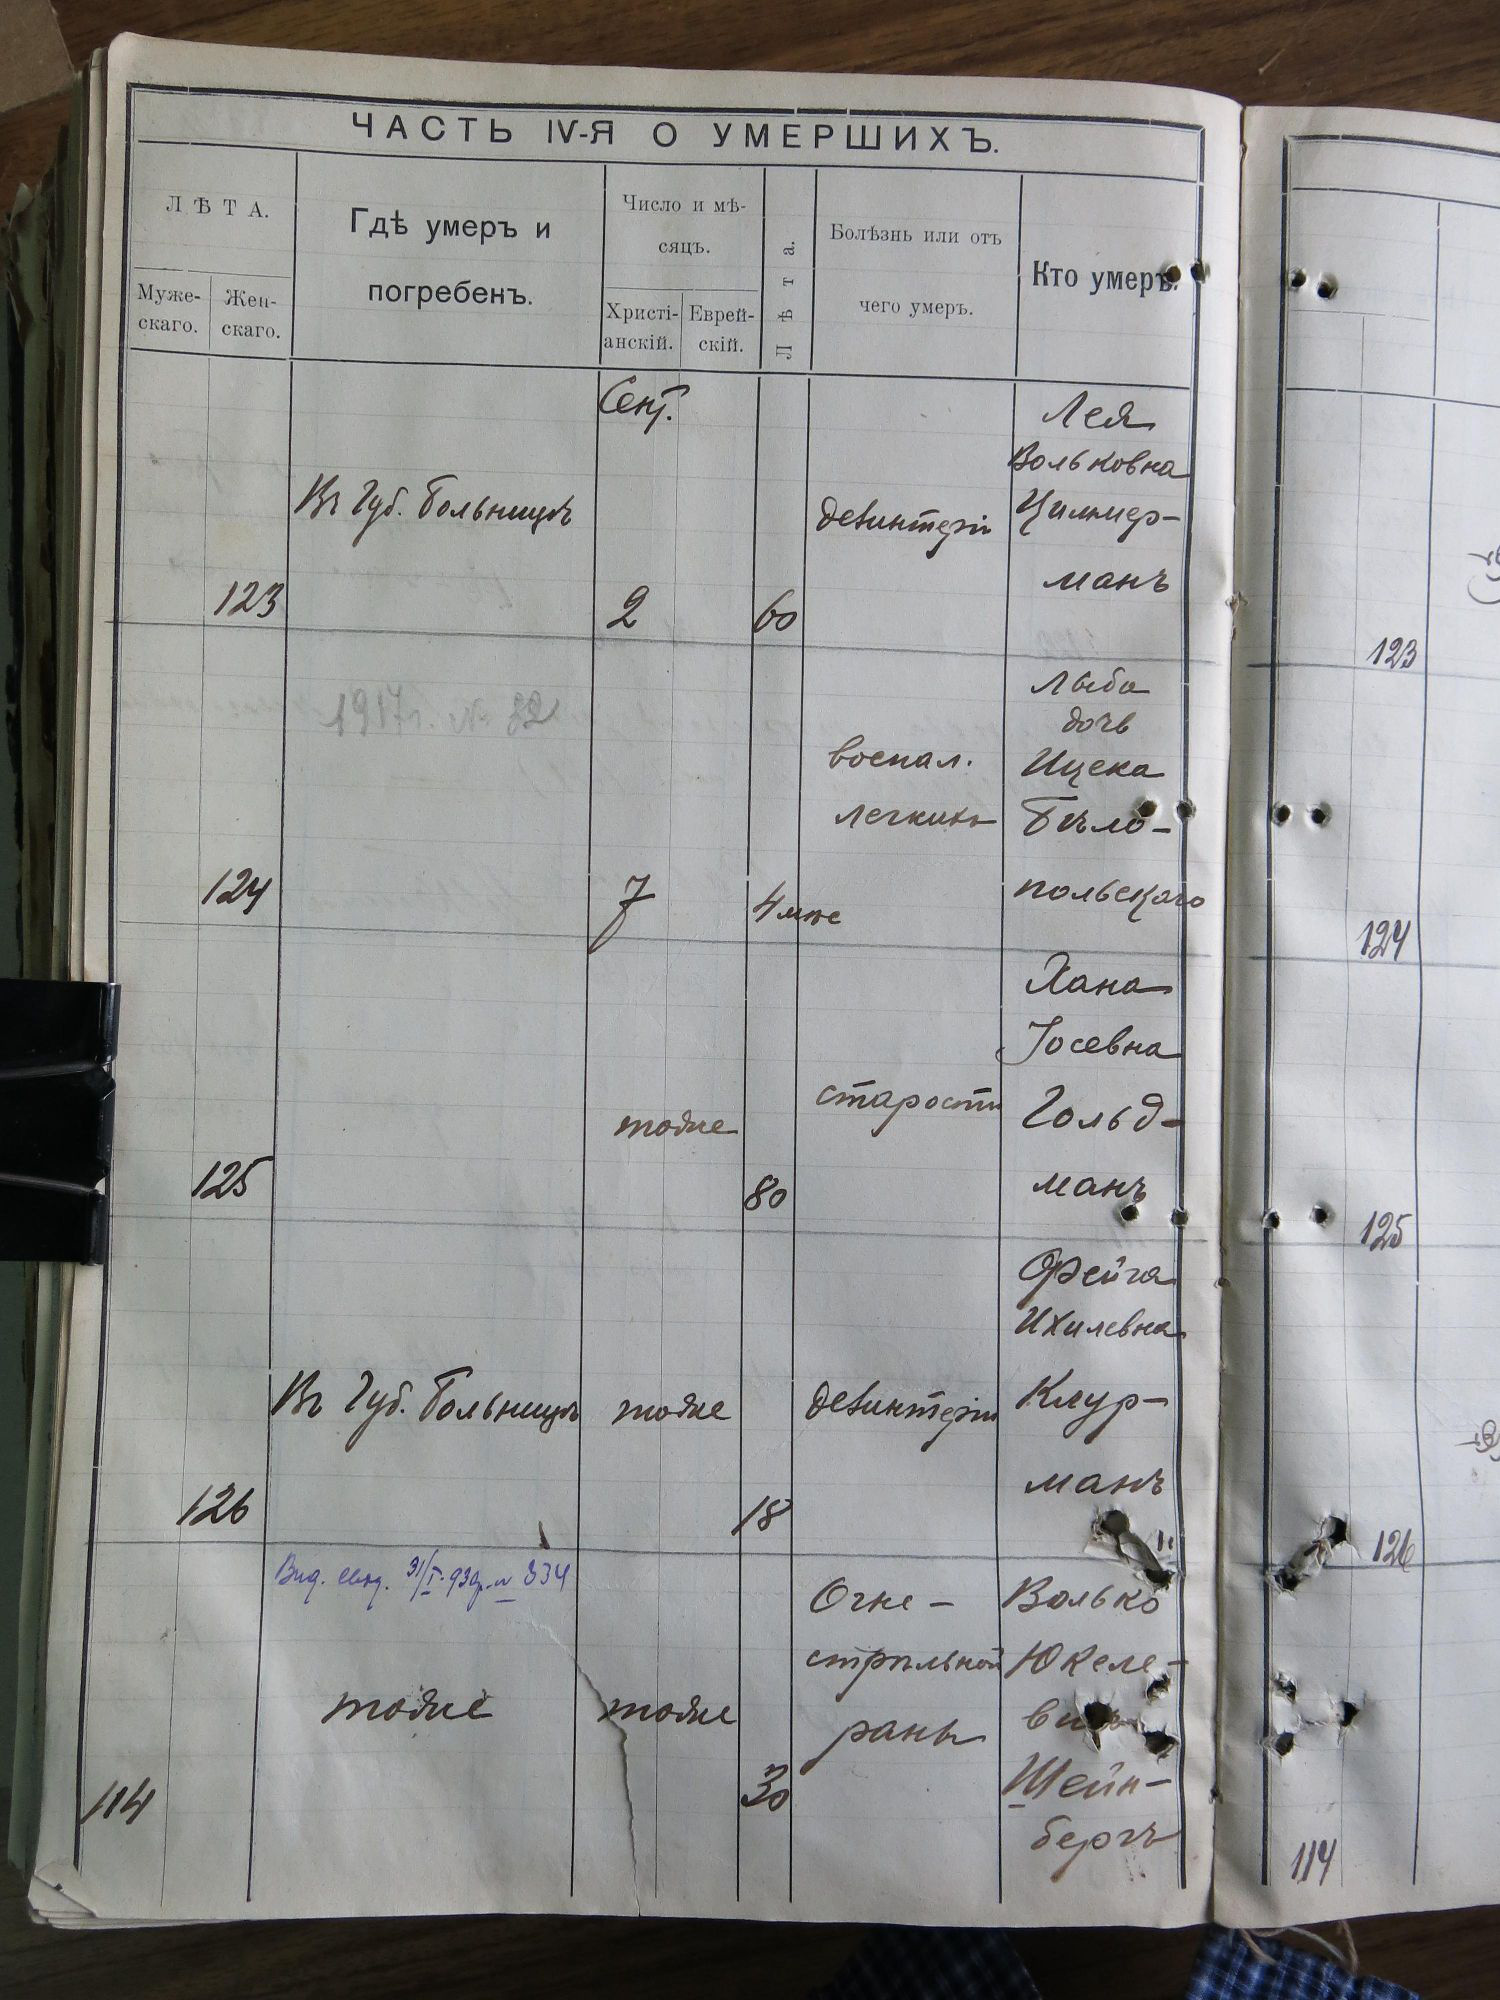 ЧАСТЬ IV-Я О УМЕРШИХЪ.
ЛѢТА.
Муже-
скаго.
Жен-
скаго.
Гдѣ умеръ и
погребенъ.
Число и мѣ-
сяцъ.
Христі-
анскій.
Еврей-
скій.
Лѣта.
Болѣзнь или отъ
чего умеръ.
Кто умеръ.
Сент.
123
Въ Губ. Больницѣ
2
60
дезинтеріи
Лея
Вольковна
Цимнер-
манъ
1917г. № 82
124
7
4 мѣс
воспал.
легкихъ
Лыба
дочь
Ицека
Бѣло-
польскаго
125
тоже
80
старости
Хана
Іосевна
Гольд-
манъ
126
Въ Губ. Больницѣ
тоже
18
дезинтеріи
Фейга
Ихилевна
Клур-
манъ
Выд. свид. 31/I-93 № 334
114
тоже
тоже
30
Огне-
стрѣльной
раны
Волько
Юкеле-
Шейн-
бергъ
123
124
125
126
114